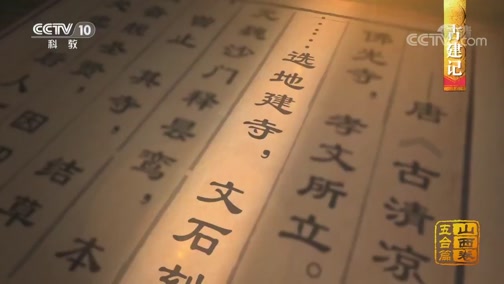 CCTV 10
科教
CCTV.com
古建记
——唐《古清凉
佛光寺，孝文所立。
……选地建寺，文石刻
魏沙门释昙鸾，本
寺，结
人因草
山西卷
五台篇